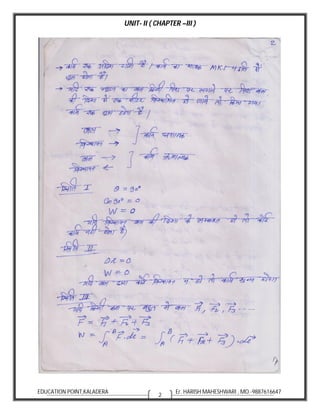 UNIT- II ( CHAPTER –III )
2
→ कार्य एक अदिश राशि है। कार्य का मात्रक MKS पद्धति में
जूल होता है।
→ यदि एक न्यूटन का बल किसी पिण्ड पर लगाने पर पिण्ड बल
की दिशा में एक मीटर विस्थापित हो जाये तो किया गया
कार्य एक जूल होता है।
बल →
विस्थापन → } कार्य धनात्मक
बल →
विस्थापन ← } कार्य ऋणात्मक
स्थिति I θ = 90°
Cos 90° = 0
W = 0
यदि विस्थापन बल की दिशा के लम्बवत हो तो कोई
कार्य नहीं होता है।
स्थिति II
dr = 0
W = 0
यदि बल द्वारा कोई विस्थापन न हो तो कार्य शून्य होगा
स्थिति III
यदि किसी कण पर बहुत से बल F₁, F₂, F₃ ----
F = F₁ + F₂ + F₃
W = ∫_A^B F.dr = ∫_A^B (F₁ + F₂ + F₃).dr
EDUCATION POINT,KALADERA
2
Er. HARISH MAHESHWARI , MO.-9887616647